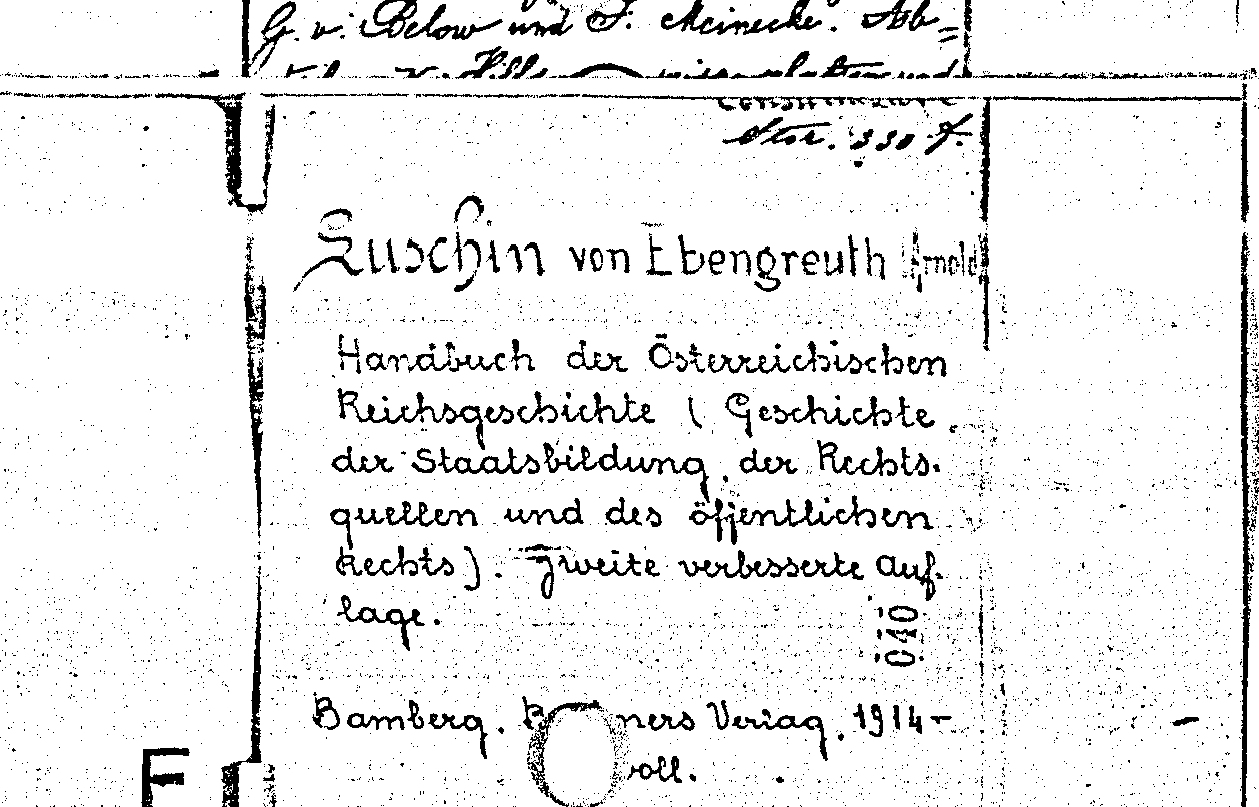 G. v. Below und F. Meinecke. Ab=
Stor. 330 f.
Luschin von Ebengreuth Arnold
Handbuch der Österreichischen
Reichsgeschichte ( Geschichte
der Staatsbildung, der Rechts-
quellen und des öffentlichen
Rechts). Zweite verbesserte Auf-
lage.
040
Bamberg. Verlag, 1914-
voll.
F